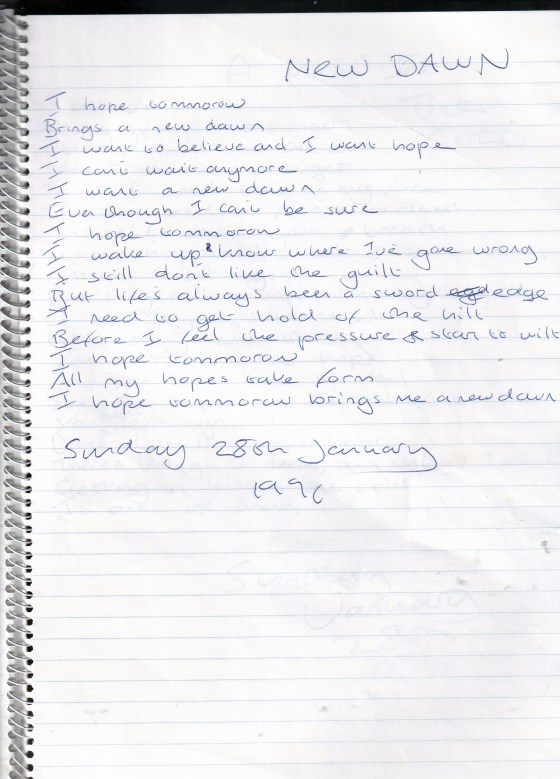 NEW DAWN
I hope tommorow
Brings a new dawn
I want to believe and I want hope
I can't wait anymore
I want a new dawn
Even though I can't be sure
I hope tommorow
I wake up & know where I've gone wrong
I still don't like the guilt
But life's always been a sword edge
I need to get hold of the hilt
Before I feel the pressure & start to wilt
I hope tommorow
All my hopes take form
I hope tommorow brings me a new dawn
Sunday 28th January
1996